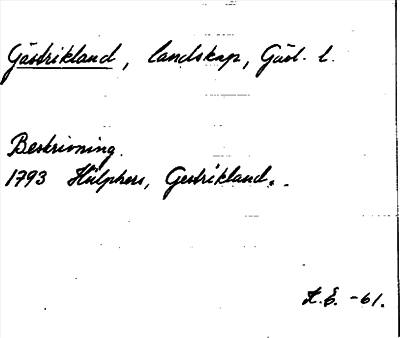 Gästrikland, landskap, Gävl. l.
Beskrivning.
1793 Hülphers, Gestrikland.
L.E. -61.